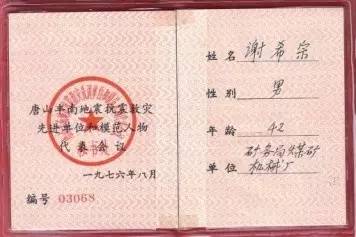 唐山丰南地震抗震救灾
先进单位和模范人物
代表会议
一九七六年八月
编号 03068
姓名 谢希宗
性别 男
年龄 42
单位 矿务局煤矿
机械厂